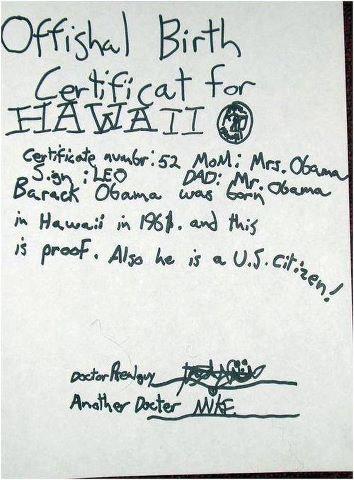 Offishal Birth
Certificat for
HAWAII
Certificate numbr: 52 MOM: Mrs. Obama
Sign: LEO DAD: Mr. Obama
Barack Obama was born
in Hawaii in 1961. and this
is proof. Also he is a U.S. citizen!
Doctor Realguy
Another Docter MIKE